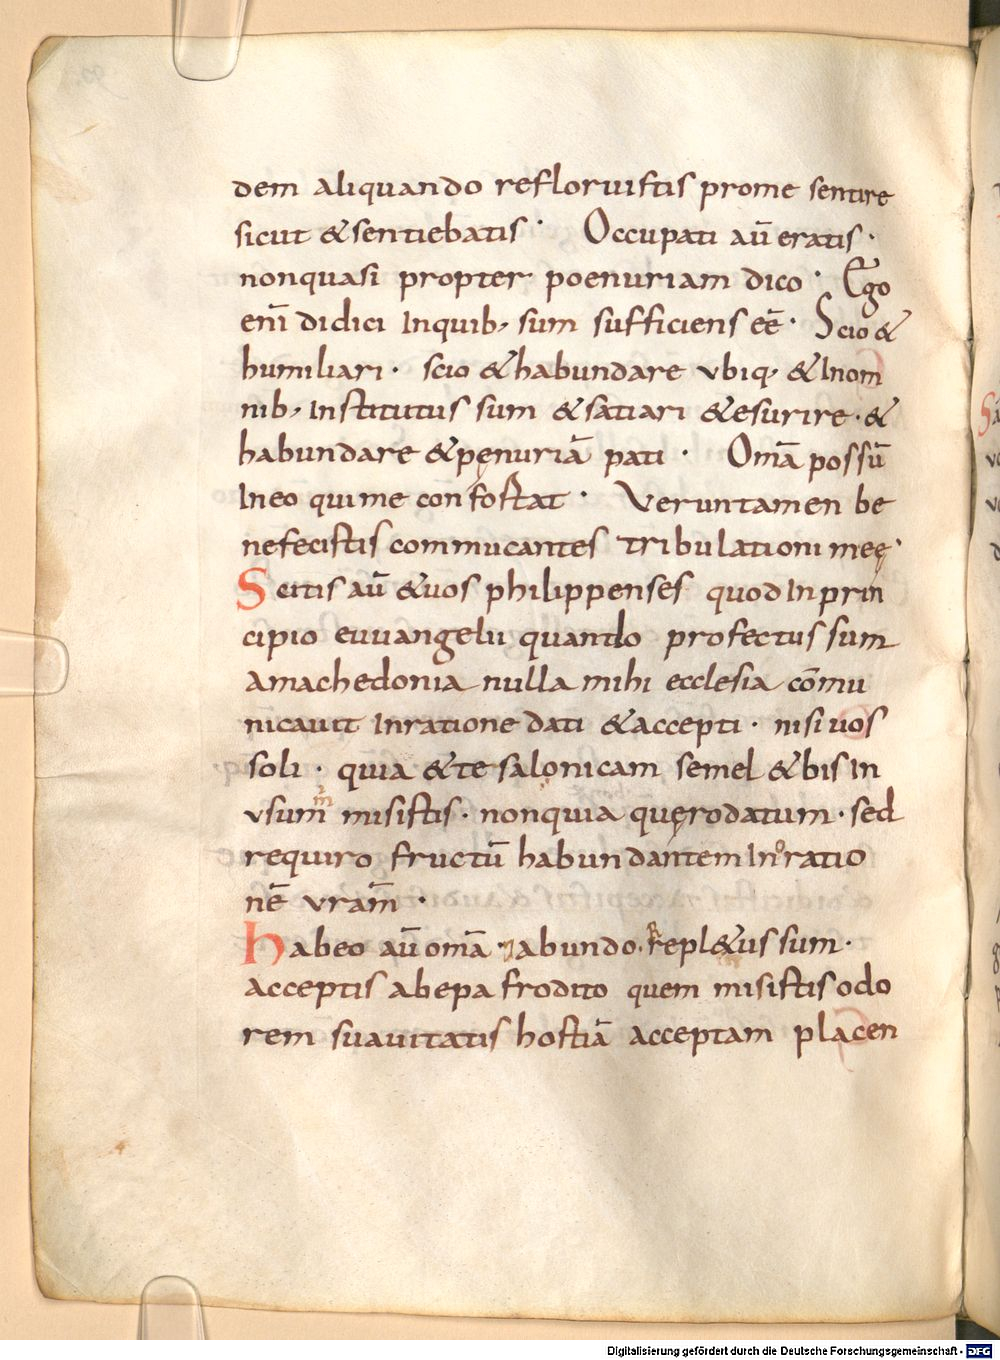 dem aliquando refloruistis prome sentire
sicut & sentiebatis · Occupati aū eratis ·
nonquasi propter poenuriam dico · Ego
enī didici Inquib, sum sufficiens eē · Scio &
humiliari · scio & habundare ubiq, & Inom
nib, Institutus sum & satiari & esurire · &
habundare & penuriā pati · Omā possū
Ineo quime confostat · Veruntamen be
nefecistis commucantes tribulationi meę ·
Scitis aū & vos philippenses quod Inprin
cipio euuangelii quando profectus sum
Amachedonia nulla mihi ecclesia cōmu
nicavit Inratione dati & accepti · nisi vos
soli · quia & tesalonicam semel & bis In
usum m misistis · nonquia quęrodatum · sed
requiro fructū habundantem Inratio
nē vram̄ ·
Habeo aū omā · abundo · repl&us sum ·
acceptis abepafrodito quem misistis odo
rem suavitatis hostiā acceptam placen
Digitalisierung gefördert durch die Deutsche Forschungsgemeinschaft - DFG